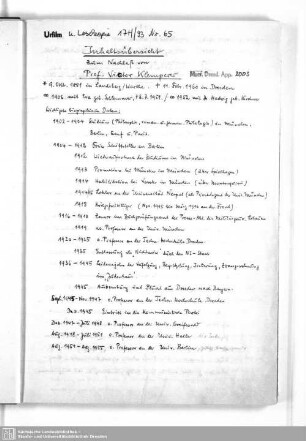 Urfilm u. Leskopie 174/93 Nr. 65
Inhaltsübersicht
zum Nachlaß von
Prof. Victor Klemperer
Mscr. Dresd. App. 2003
* 9. Okt. 1881 in Landsberg/Warthe. + 11. Febr. 1960 in Dresden
∞ 1906 mit Eva geb. Schlemmer, ∞ 1952 mit Hadwig geb. Kirchner
Wichtige biographische Daten:
1902-1904 Studium (Philosophie, roman. u. german. Philologie) in München,
Berlin, Genf u. Paris.
Freier Schriftsteller in Berlin
1912 Wiederaufnahme des Studiums in München
1913 Promotion bei Muncker in München (über Spielhagen)
1914 Habilitation bei Vossler in München (über Montesquieu)
Lektor an der Universität Neapel
1915 Kriegsfreiwilliger
1916-1918 Zensor im Buchprüfungsamt der Presse-Abt. des Militärgouv. Litauen
1919 ao. Professor an der Univ. München
1920-1935 o. Professor an der Techn. Hochschule Dresden
1935 Entlassung als Hochschul durch den NS-Staat
1935-1945 Leidensjahre der Verfolgung, Bespitzelung, Isolierung, Zwangswohnung
im "Judenhaus"
1945 Ausbombung und Flucht aus Dresden nach Bayern
Sept. 1945-Nov. 1947 o. Professor an der Techn. Hochschule Dresden
Nov. 1945 Eintritt in die Kommunistische Partei
Dez. 1947-Juli 1948 o. Professor an der Univ. Greifswald
o. Professor an der Univ. Halle
o. Professor an der Univ. Berlin
Sächsische Landesbibliothek -
Staats- und Universitätsbibliothek Dresden